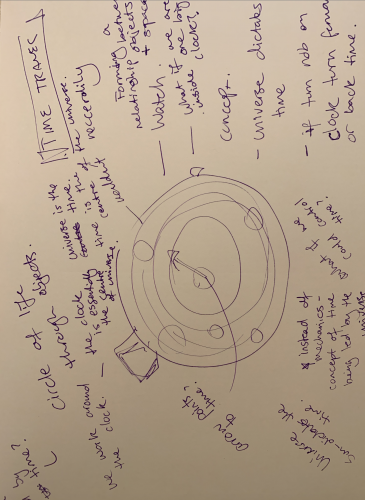 TIME TRAVEL
Forming a
relationship between
objects
+ space
— Watch.
— What if we are
inside one big
clock?
concept.
— universe dictates
time
— if turn nob on
clock turn forward
or back time.
what if we
could control
time?
* instead of
mechanics -
concept of time
being led by the
universe
Universe
dictates the
time.
arrow
points to
time.
Circle of life
through objects.
we work around
the clock.
— the clock
is essentially
the centre
of universe.
universe is the
centre of time.
time is the
centre of the universe.
by time?